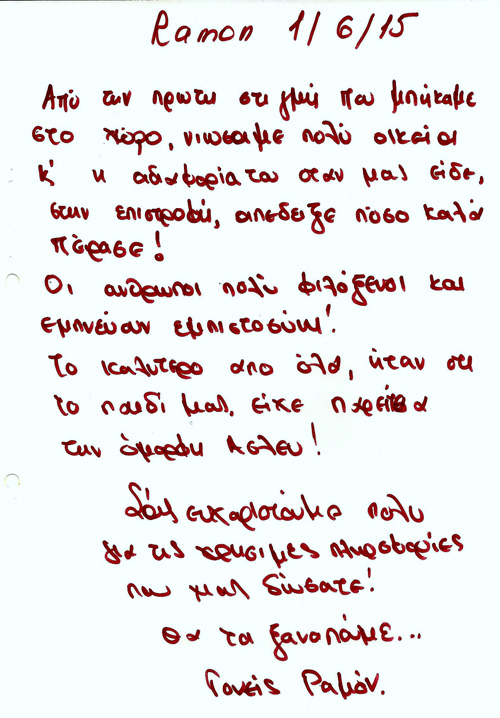 Ramon 1/6/15
Από την πρωτη στιγμή που μπήκαμε
στο χώρο, νιωσαμε πολύ οικεία
κ' η αδιαφορία του οταν μας είδε,
στην επιστροφή, απεδειξε πόσο καλά
πέρασε!
Οι ανθρωποι πολύ φιλόξενοι και
εμπνέυαν εμπιστοσύνη!
Το καλυτερο απο όλα, ήταν οτι
το παιδί μας, είχε παρέα
την όμορφη Ασλευ!
Σας ευχαριστουμε πολυ
για τις χρησιμες πληροφορίες
που μας δώσατε!
Θα τα ξαναπάμε...
Γονείς Ραμόν.